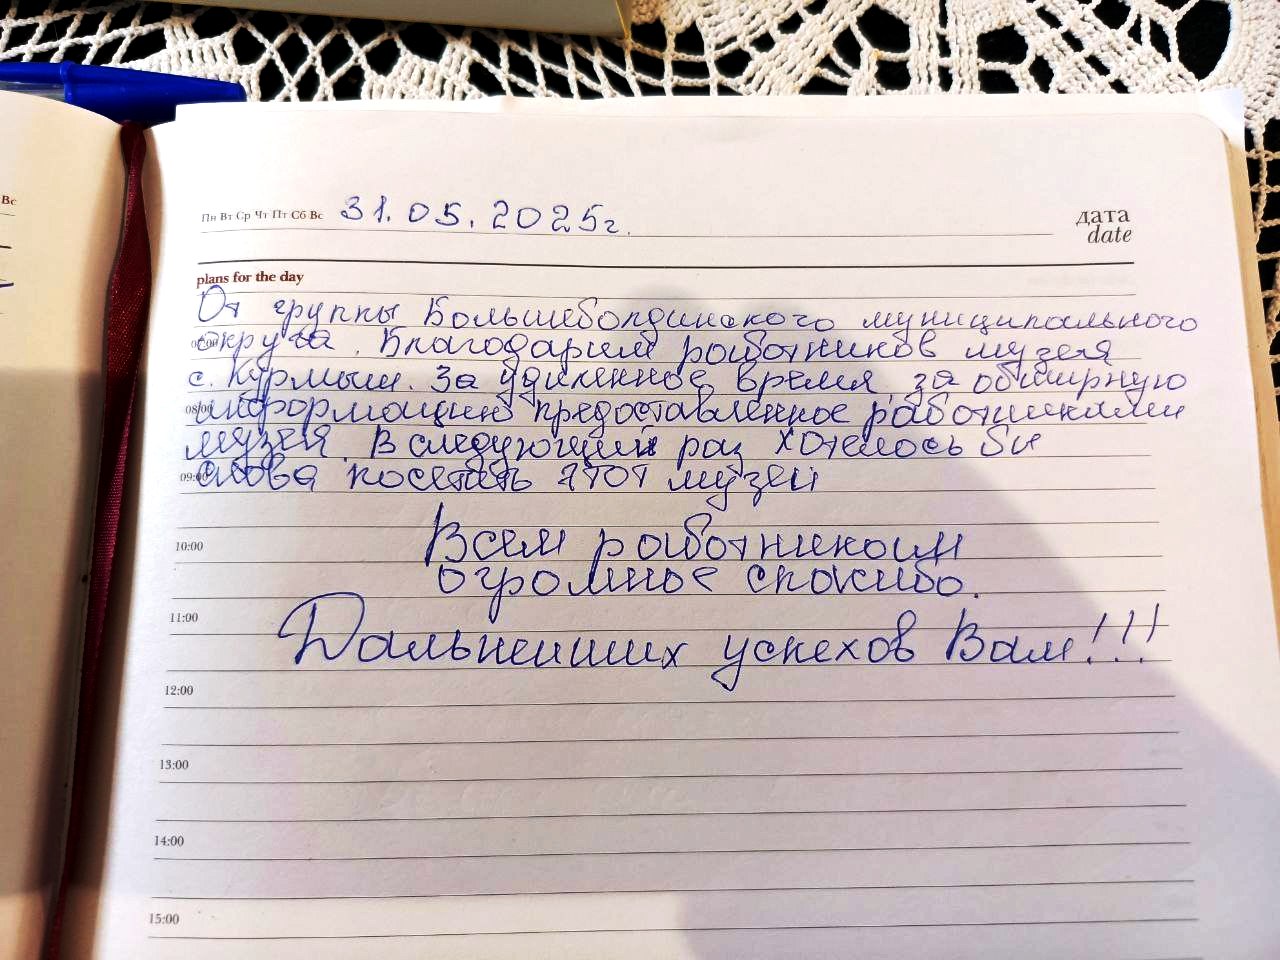 Вс
Пн Вт Ср Чт Пт Сб Вс 31.05.2025г.
дата
date
plans for the day
От группы Большеболдинского муниципального
округа. Благодарим работников музея
с. Курмыш. За уделенное время, за обширную
08:00 информацию предоставленное работниками
музея. В следующий раз хотелось би
09:00 снова посетить этот музей
10:00 Всем работникам
огромное спасибо.
11:00
Дальнейших успехов Вам!!!
12:00
13:00
14:00
15:00